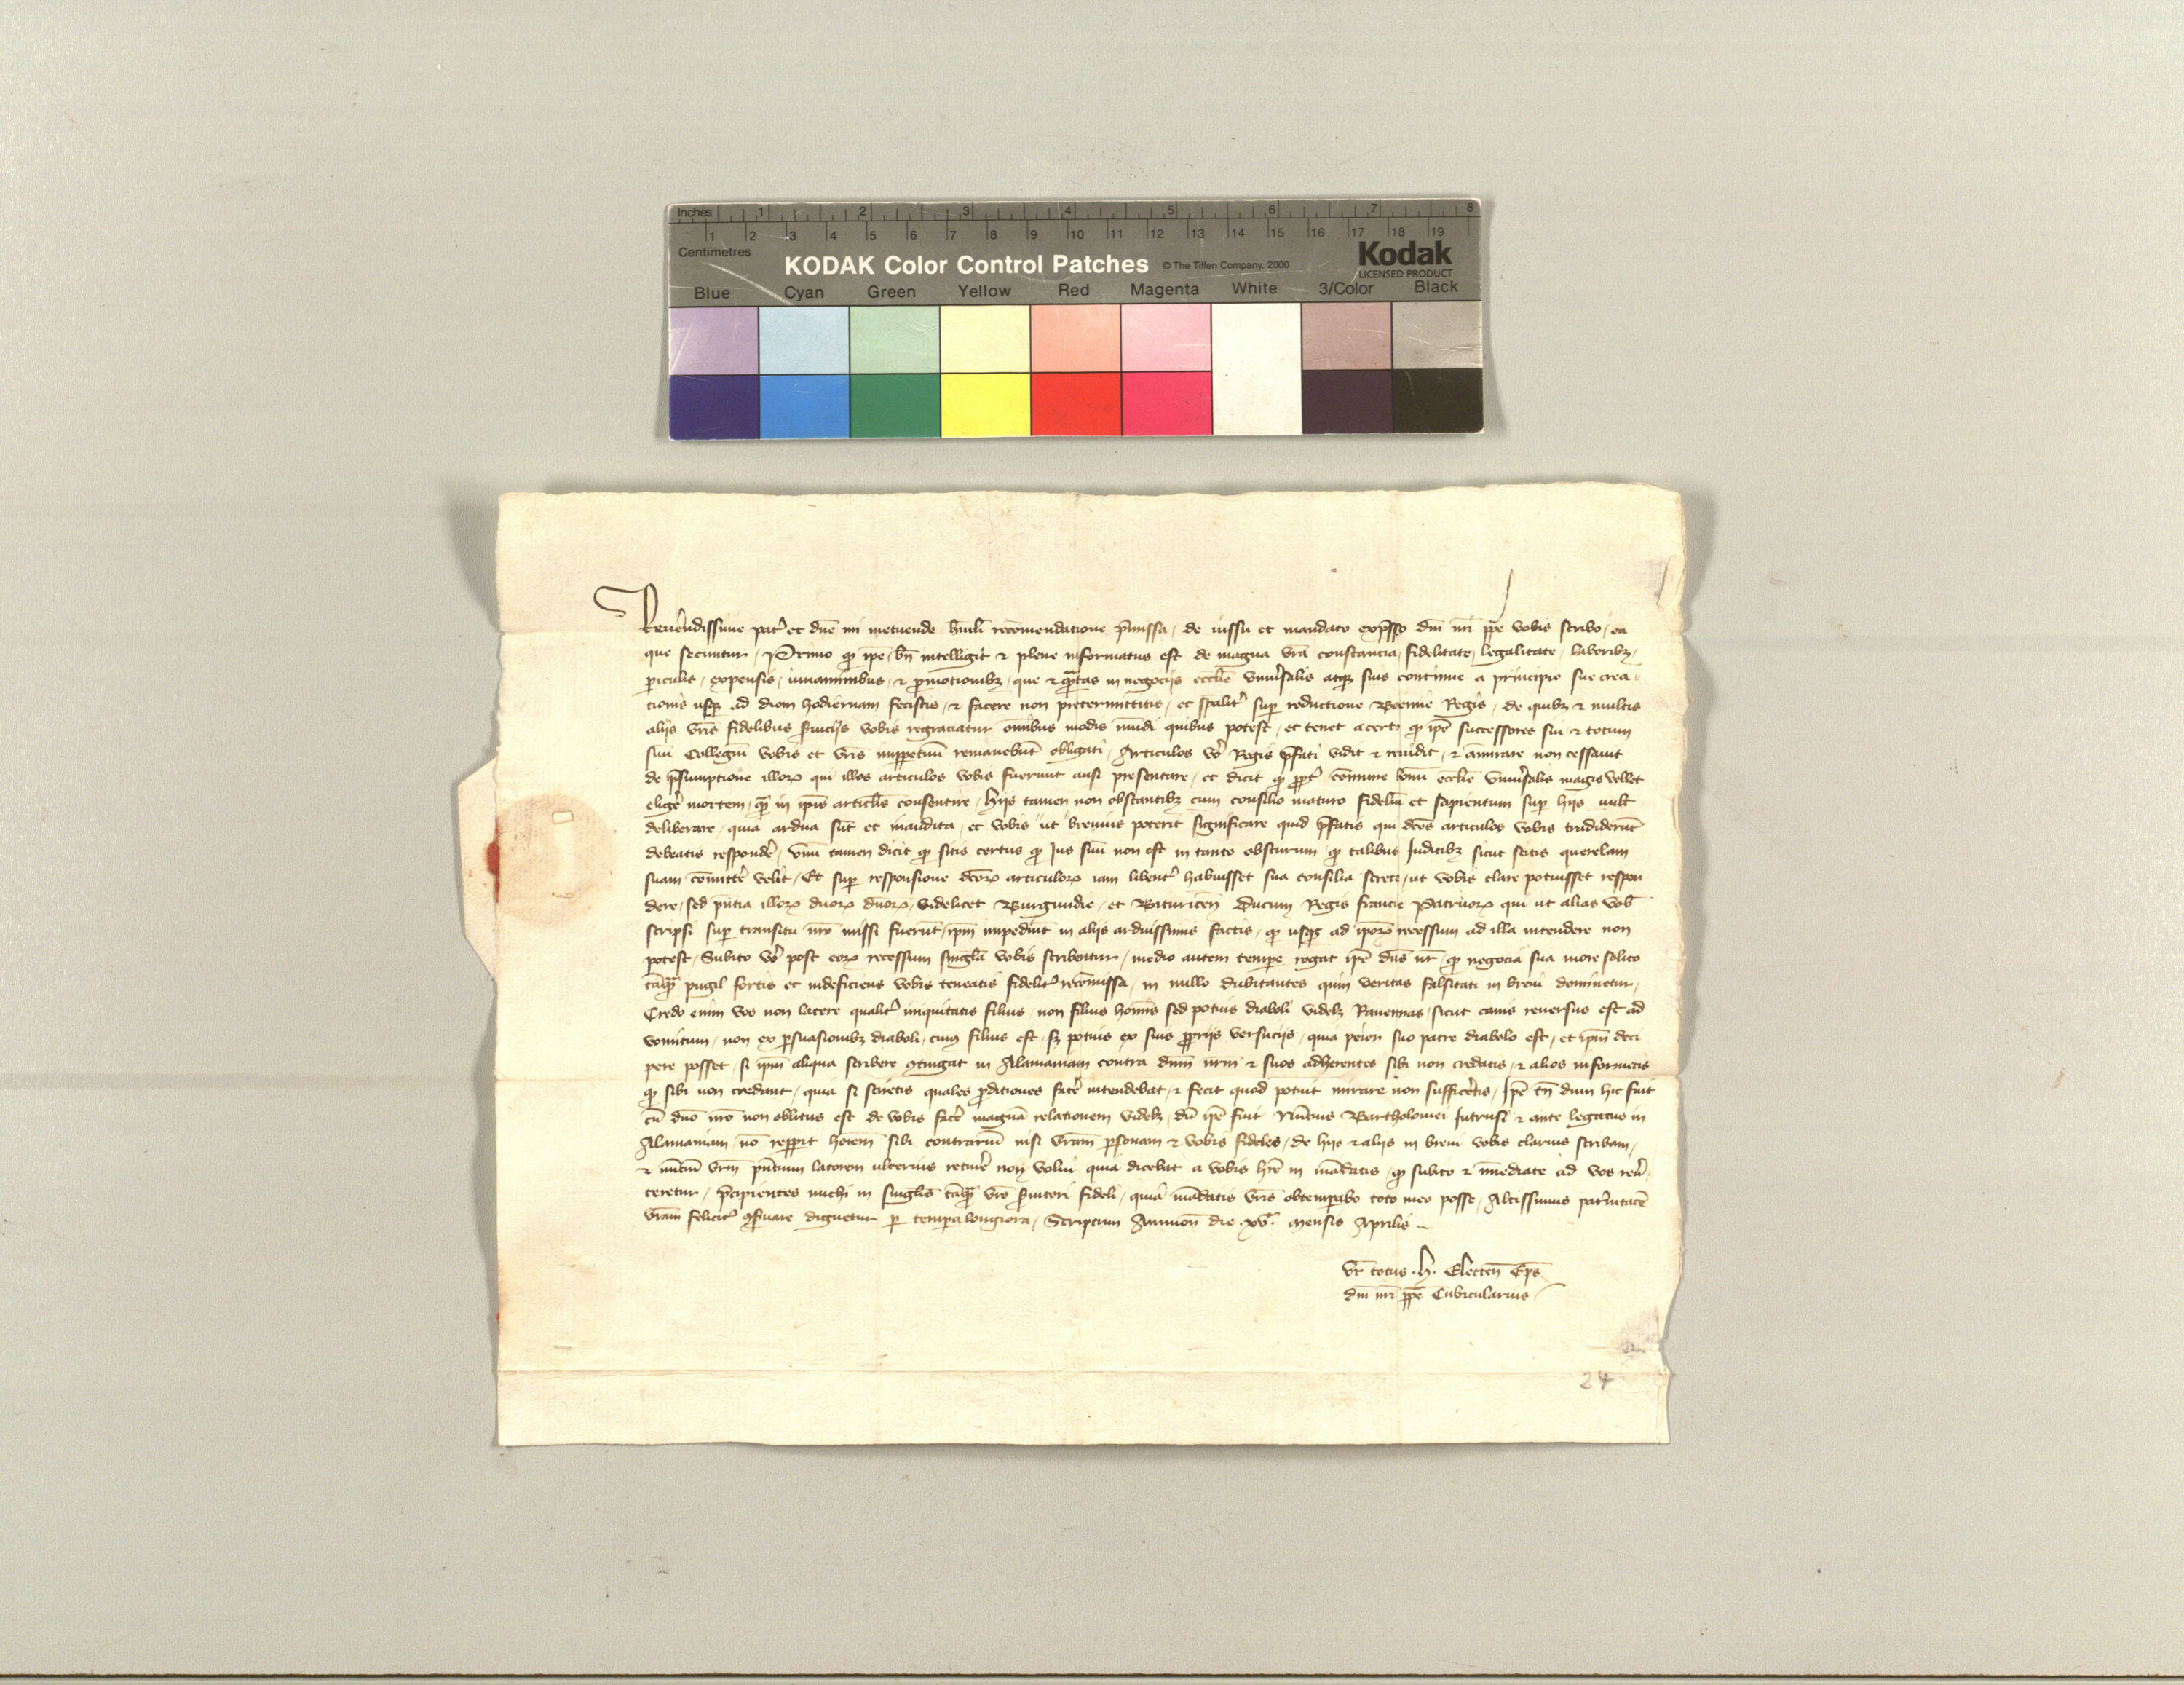 Inches 1 2 3 4 5 6 7 8
1 2 3 4 5 6 7 8 9 10 11 12 13 14 15 16 17 18 19
Centimetres
KODAK Color Control Patches © The Tiffen Company, 2000 Kodak
LICENSED PRODUCT
Blue Cyan Green Yellow Red Magenta White 3/Color Black
Reuerēdissime pat᷒ et dn̄e mi metuende hūili recōmendatione p̄missa / de iussu et mandato exp̄sso dn̄i nr̄i pp̄e vobis scribo / ea
que secuntur / Primo qꝫ ip̄e bn̄ intelligit ⁊ plene informatus est de magna vr̄a constancia / fidelitate / legalitate / laboribꝫ /
ꝑiculis / expensis / iuuaminibus / ⁊ ꝓmotionibꝫ / que ⁊ qᷓntas in negocijs eccl̄ie vniu᷒salis atqꝫ suis continue a principio sue crea
tionis usqꝫ ad diem hodiernam fecistis / ⁊ facere non pretermittitis / et sp̄alit᷒ suꝑ reductione Boemie Regis / de quibꝫ ⁊ multis
alijs vr̄is fidelibus s᷒uicijs vobis regraciatur om̄ibus modis mūdi quibus potest / et tenet a certo qꝫ ip̄e successores sui ⁊ totum
suū Collegiū vobis et vr̄is imppetuū remanebūt obligati / Articulos vo᷒ Regis p̄fati vidit ⁊ reuidit / ⁊ āmirare non cessauit
de p̄sumptione illoꝝ qui illos articulos vobis fuerunt ausi presentare / et dicit qꝫ ꝓpt᷒ cōmune bonū eccl̄ie vniu᷒salis magis vellet
elige᷒ mortem / qᷓ in ip̄is articl̄is consentire / hijs tamen non obstantibꝫ cum consilio maturo fideliū et sapientum suꝑ hijs vult
deliberare / quia ardua sūt et inaudita / et vobis ut breuius poterit significare quid p̄fatis qui dc̄os articulos vobis tradiderūt
debeatis responde᷒ / vnū tamen dicit qꝫ sitis certus qꝫ Jus suū non est in tanto obscurum / qꝫ talibus Judicibꝫ sicut scitis querelam
suam cōmitte᷒ velit / Et suꝑ responsione dc̄oꝝ articuloꝝ iam libent᷒ habuisset sua consilia secreta / ut vobis clare potuisset respon
dere / sed pn̄tia illoꝝ duoꝝ dn̄oꝝ / videlicet Burgundie / et Bituricen̄ Ducum Regis francie Patruoꝝ qui ut alias vob̄
scripsi suꝑ transitu nr̄o missi fuerūt / ip̄m impediūt in alijs arduissimis factis / qꝫ usqꝫ ad ip̄oꝝ recessum ad illa intendere non
potest / Subito vo᷒ post eoꝝ recessum singl̄a vobis scribentur / medio autem tempe rogat ip̄e dn̄s nr̄ / qꝫ negocia sua more solito
tāqᷓ pugil fortis et indeficiens vobis teneatis fidelit᷒ recōmissa / in nullo dubitantes quin veritas falsitati in breui dominetur /
Credo enim vos non latere qualit᷒ iniquitatis filius / non filius hoīnis sed potius diaboli videlꝫ Rauennas / sicut canis reuersus est ad
vomitum / non ex ꝑsuasionibꝫ diaboli / cuiꝰ filius est / sꝫ potius ex suis ꝓprijs versucijs / quia peior suo patre diabolo est / et ip̄m deci
pere posset / si ip̄m aliqua scribere ꝯtingat in Alamaniam contra dn̄m nr̄m ⁊ suos adherentes sibi non credatis / ⁊ alios informetis
qꝫ sibi non credant / quia si sciretis quales ꝓditiones face᷒ intendebat / ⁊ fecit quod potuit mirare non suffice᷒tis / Ip̄e tn̄ dum hic fuit
cū dn̄o nr̄o non oblitus est de vobis face᷒ magnā relationem videlꝫ / dū ip̄e fuit Nūtius Bartholomei Intrusi ⁊ ante legatus in
Alamaniam / nō repꝑit hoīem sibi contrariū nisi vr̄am ꝑsonam ⁊ vobis fideles / de hijs ⁊ alijs in breui vobis clarius scribam /
⁊ nūtiū vr̄m pn̄tium latorem ulterius retine᷒ non volui quia dicebat a vobis hr̄e in mādatis / qꝫ subito ⁊ īmediate ad vos reu᷒
teretur / p̄cipientes michi in singl̄is tāqᷓ vr̄o s᷒uitori fideli / quia mādatis vr̄is obtemꝑabo toto meo posse / Altissimus pat᷒nitatē
vr̄am felicit᷒ ꝯs᷒uare dignetur ꝑ tempa longiora / Scriptum Auinion̄ die .xvͣ. mensis Aprilis
Vr̄ totus .h. Electen̄ Ep̄s
dn̄i nr̄i pp̄e Cubicularius
24